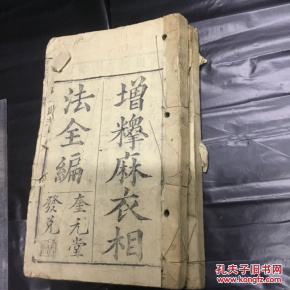 增釋麻衣相
法全編
奎元堂
發兌
孔夫子旧书网